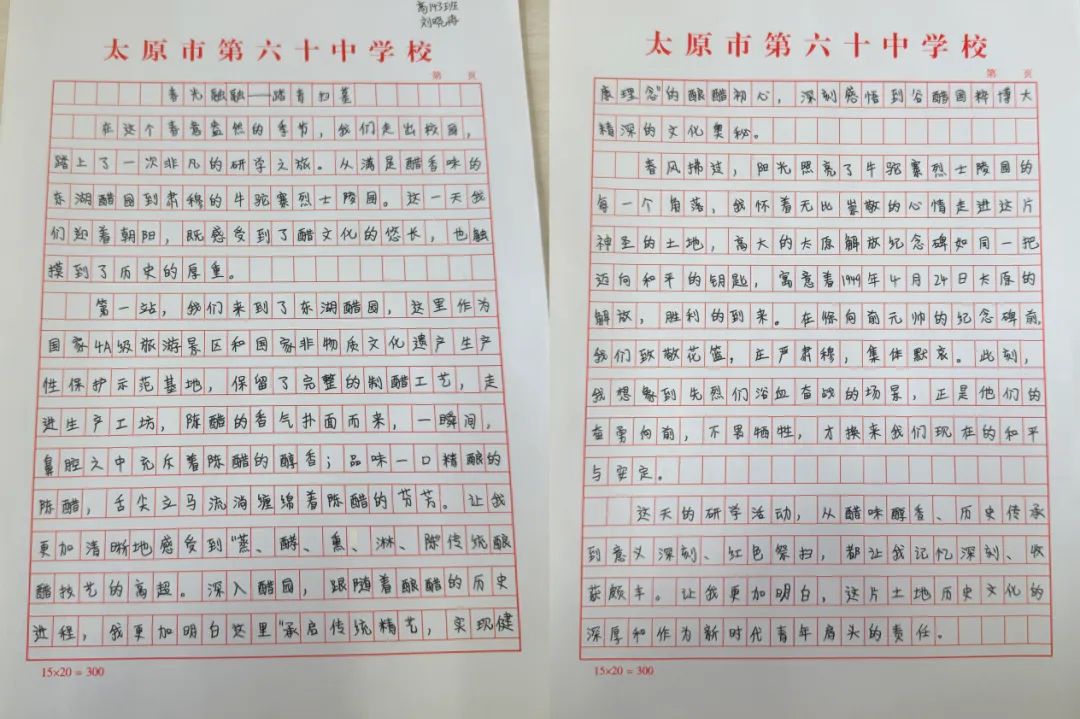 高143班
刘晓冉
太原市第六十中学校
第 页
春光融融——踏青扫墓
在这个春意盎然的季节，我们走出校园，
踏上了一次非凡的研学之旅。从满是醋香味的
东湖醋园到肃穆的牛驼寨烈士陵园。这一天我
们迎着朝阳，既感受到了醋文化的悠长，也触
摸到了历史的厚重。
第一站，我们来到了东湖醋园，这里作为
国家4A级旅游景区和国家非物质文化遗产生产
性保护示范基地，保留了完整的制醋工艺，走
进生产工坊，陈醋的香气扑面而来，一瞬间，
鼻腔之中充斥着陈醋的醇香；品味一口精酿的
陈醋，舌尖立马流淌缠绵着陈醋的芬芳。让我
更加清晰地感受到“蒸、酵、熏、淋、陈”传统酿
醋技艺的高超。深入醋园，跟随着酿醋的历史
进程，我更加明白这里“承启传统精艺，实现健
15×20=300
太原市第六十中学校
第 页
康理念”的酿醋初心，深刻感悟到谷醋国粹博大
精深的文化奥秘。
春风拂过，阳光照亮了牛驼寨烈士陵园的
每一个角落，我怀着无比崇敬的心情走进这片
神圣的土地，高大的太原解放纪念碑如同一把
迈向和平的钥匙，寓意着1949年4月24日太原的
解放，胜利的到来。在徐向前元帅的纪念碑前，
我们致敬花篮，庄严肃穆，集体默哀。此刻，
我想象到先烈们浴血奋战的场景，正是他们的
奋勇向前，不畏牺牲，才换来我们现在的和平
与安定。
这天的研学活动，从醋味醇香、历史传承
到意义深刻、红色祭扫，都让我记忆深刻、收
获颇丰。让我更加明白，这片土地历史文化的
深厚和作为新时代青年肩头的责任。
15×20=300